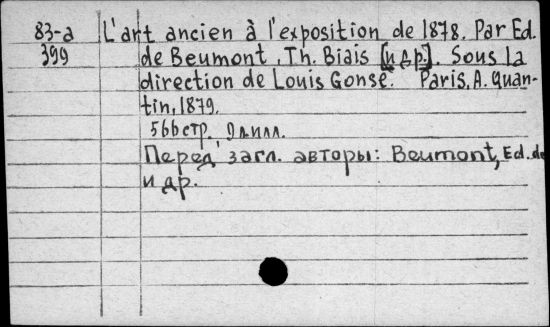 83-а L'art ancien à l'exposition de 1878. Par Ed.
399 de Beumont, Th. Biais [и др.]. Sous la
direction de Louis Gonse. Paris, A. Quan-
tin, 1879.
566 стр. 9 л. илл.
Перед загл. авторы: Beumont, Ed. de
и др.